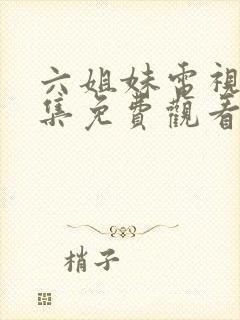 六姐妹電視
集免費觀看
梢子